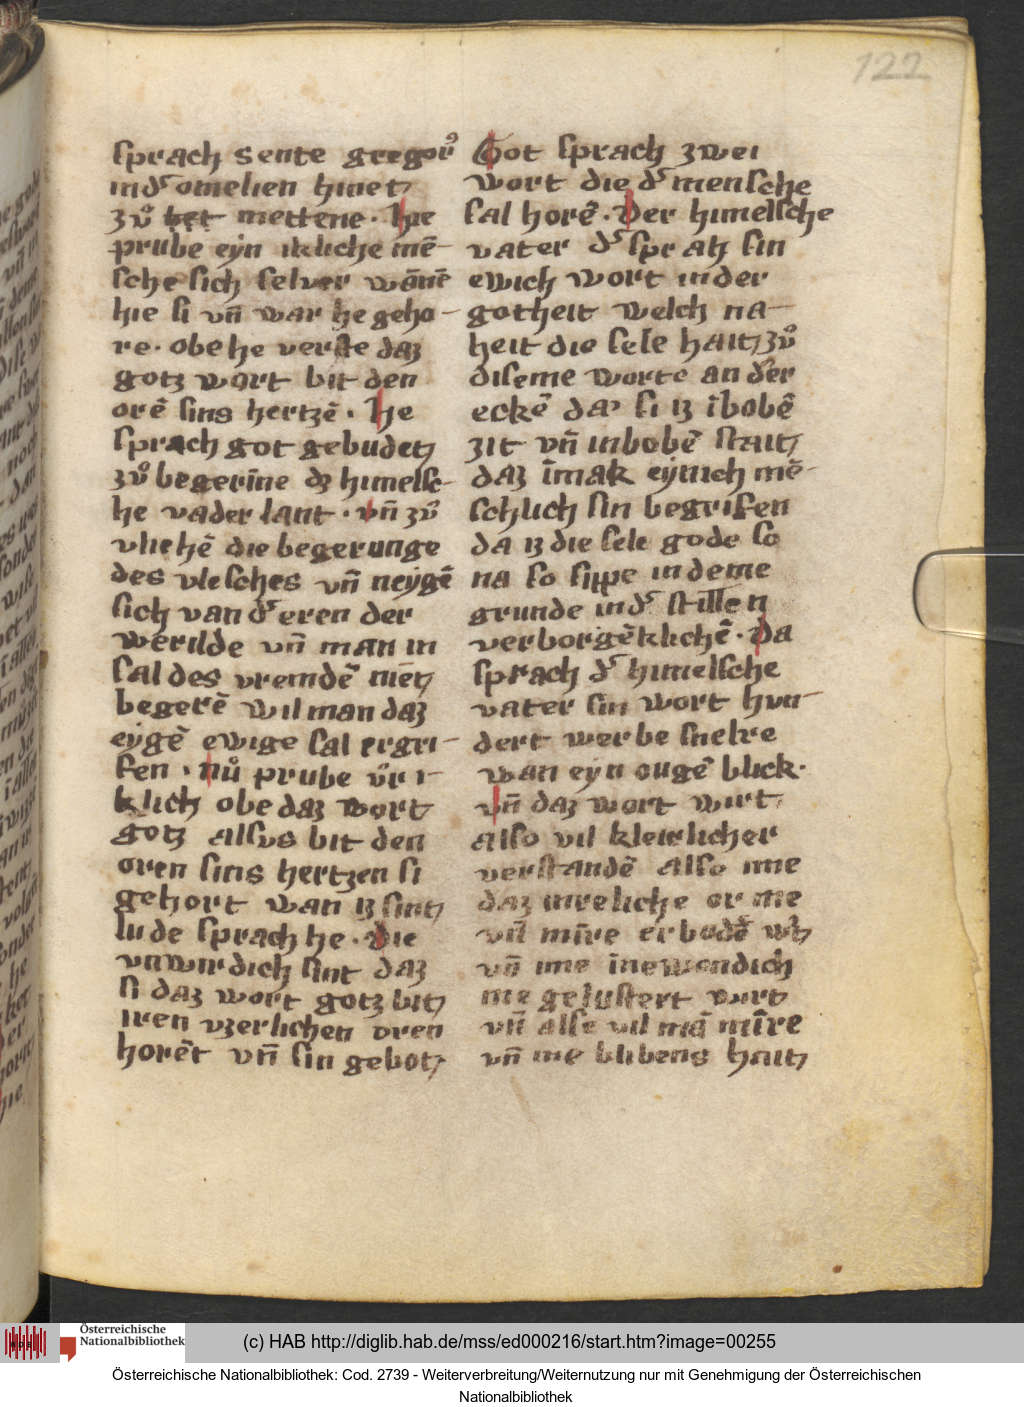 122
sprach sente gregorꝰ
in dʼ omelien hinet
zuͦ bet mettene · Hie
prube eyn iklich mē-
sche sich selver wānē
hie si vn̄ war he geho-
re · obe he verste daz
gotz wort bit den
orē sins hertzē · He
sprach got gebudetz
zuͦ begerīne dz himelsc-
he vader lant · vn̄ zuͦ
vliehē die begerunge
des vlesches vn̄ neygē
sich van dʼ eren der
werilde vn̄ man in
sal des vremdē nietz
begerē wil man daz
eygē ewige sal ergri-
fen · nuͦ prube vͦr i-
klich obe daz wort
gotz alsus bit den
oren sins hertzen si
gehort wan iz sintz
lude sprach he · die
vnwirdich sint daz
si daz wort gotz bitz
iren vzerlichen oren
horēt vn̄ sin gebotz
Got sprach zwei
wort die dʼ mensche
sal horē · Der himelsche
vater dʼ sprah sin
ewich wort in der
gotheit welch na-
heit die sele haitz zuͦ
diseme worte an der
eckē daʼ si iz ībobē
zit vn̄ inbobē staitz
daz īmak eynich mē-
schlich sin begrifen
da iz die sele gode so
na so sippe in deme
grunde in dʼ stillen
verborgēklichē · Da
sprach dʼ himelsche
vater sin wort hun-
dert werbe snelre
wan eyn ougē blick ·
vn̄ daz wort wirt
also vil kleirlicher
verstandē also ime
daz inreliche or me
vn̄ mīre erbodē wʼtz
vn̄ ime īnewendich
me gelustert wirt
vn̄ alse vil mā mīre
vn̄ me blibens haitz
Österreichische
Nationalbibliothek
(c) HAB http://diglib.hab.de/mss/ed000216/start.htm?image=00255
Österreichische Nationalbibliothek: Cod. 2739 - Weiterverbreitung/Weiternutzung nur mit Genehmigung der Österreichischen
Nationalbibliothek